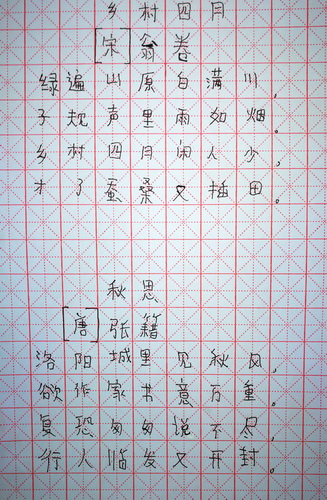 乡村四月
[宋]翁卷
绿遍山原白满川,
子规声里雨如烟。
乡村四月闲人少,
才了蚕桑又插田。
秋思
[唐]张籍
洛阳城里见秋风,
欲作家书意万重。
复恐匆匆说不尽,
行人临发又开封。